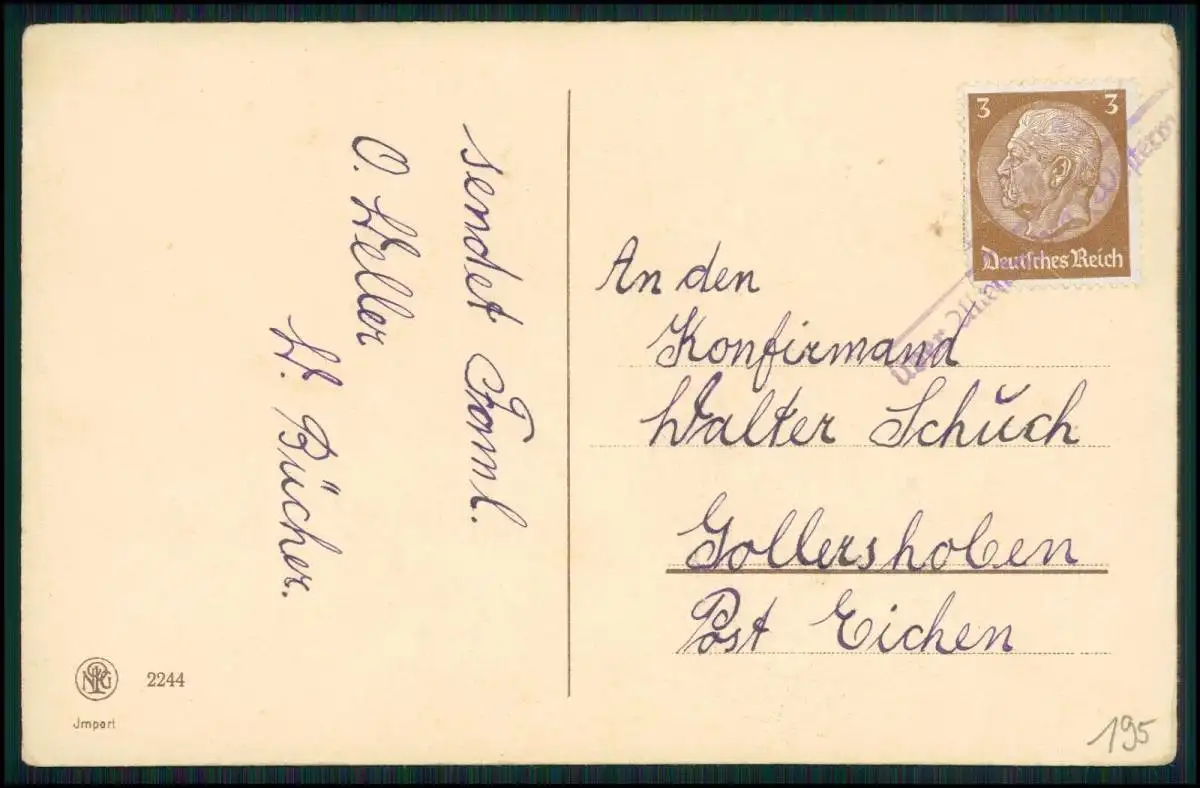 sendet Faml.
O. Weller
W. Bücher.
3 3
Deutsches Reich
über
An den
Konfirmand
Walter Schŭch
Gollershoben
Post Eichen
2244
Jmport
195